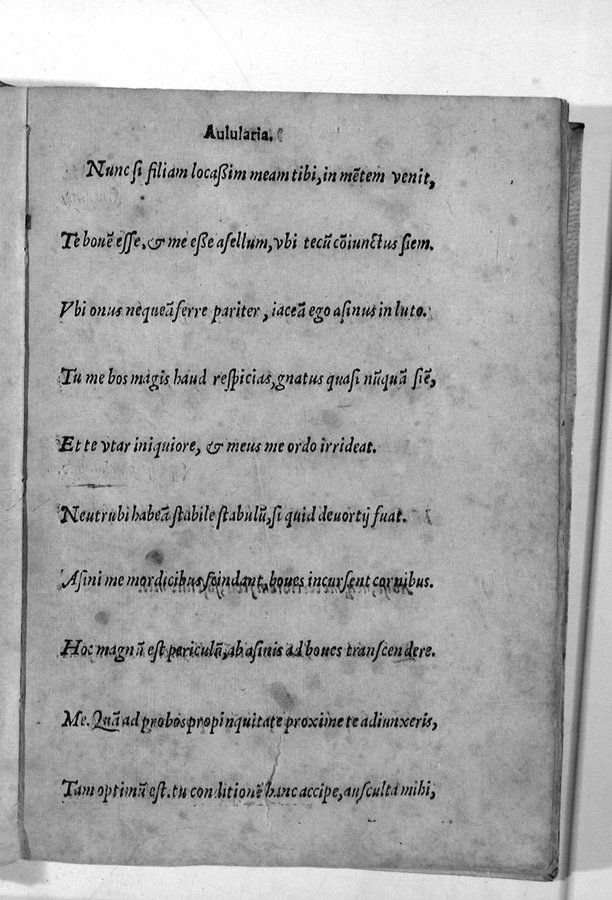 Aulularia.
Nunc ſi filiam locaßim meam tibi, in mẽtem venit,
Te bouẽ eſſe, & me eße aſellum, vbi tecũ cõiunctus ſiem.
Vbi onus nequeã ferre pariter, iaceã ego aſinus in luto.
Tu me bos magis haud reſpicias, gnatus quaſi nũquã ſiẽ,
Et te vtar iniquiore, & meus me ordo irrideat.
Neutrubi habeã ſtabile ſtabulũ, ſi quid deuortij fuat.
Aſini me mordicibus ſcindant, boues incurſent cornibus.
Hoc magnũ eſt periculũ, ab aſinis ad boues tranſcendere.
Me. Quã ad probos propinquitate proxime te adiunxeris,
Tam optimũ eſt. tu conditionẽ hanc accipe, auſculta mihi,